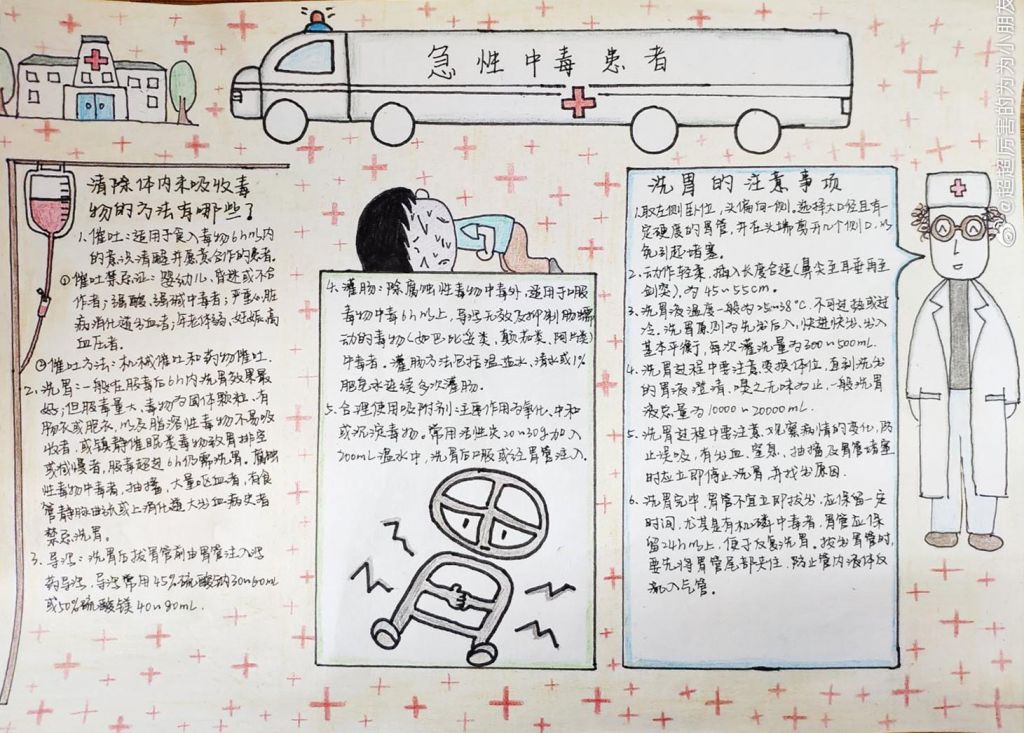 急性中毒患者
清除体内未吸收毒
物的方法有哪些?
1. 催吐:适用于食入毒物6h以内
的意识清醒并愿意合作的患者.
①催吐禁忌证:婴幼儿、昏迷或不合
作者;强酸、强碱中毒者;严重心脏
病消化道出血者;年老体弱、妊娠、高
血压者.
②催吐方法:机械催吐和药物催吐.
2. 洗胃:一般在服毒后6h内洗胃效果最
好;但服毒量大、毒物为固体颗粒、有
肠衣或胶衣,以及脂溶性毒物不易吸
收者,或镇静催眠类毒物致胃排空
或减慢者,服毒超过6h仍需洗胃。腐蚀
性毒物中毒者,抽搐,大量呕血者,有食
管静脉曲张或上消化道大出血病史者
禁忌洗胃.
3. 导泻:洗胃后拔胃管前由胃管注入泻
药导泻,导泻常用45%硫酸钠30~60mL
或50%硫酸镁40~80mL.
4. 灌肠:除腐蚀性毒物中毒外,适用于口服
毒物中毒6h以上,导泻无效及抑制肠蠕
动的毒物(如巴比妥类、颠茄类、阿片类)
中毒者。灌肠方法包括温盐水、清水或1%
肥皂水连续多次灌肠.
5. 合理使用吸附剂:主要作用为氧化、中和
或沉淀毒物。常用活性炭20~30g加入
200mL温水中,洗胃后口服或经胃管注入.
洗胃的注意事项
1.取左侧卧位,头偏向一侧.选择大口径且有一
定硬度的胃管,并在头端剪开几个侧口,以
免引起堵塞.
2. 动作轻柔,插入长度合适(鼻尖至耳垂再至
剑突),为45~55cm.
3. 洗胃液温度一般为25~38℃,不可过热或过
冷。洗胃原则为先出后入,快进快出,出入
基本平衡,每次灌洗量为300~500mL.
4. 洗胃过程中要注意变换体位,直到洗出
的胃液澄清,嗅之无味为止,一般洗胃
液总量为10000~20000mL.
5. 洗胃过程中要注意观察病情的变化,防
止误吸,有出血、窒息、抽搐及胃管堵塞
时应立即停止洗胃,并找出原因.
6. 洗胃完毕,胃管不宜立即拔出,应保留一定
时间,尤其是有机磷中毒者,胃管应保
留24h以上,便于反复洗胃。拔出胃管时,
要先将胃管尾部夹住,防止管内液体反
流入气管。
@超超厉害的为为小朋友